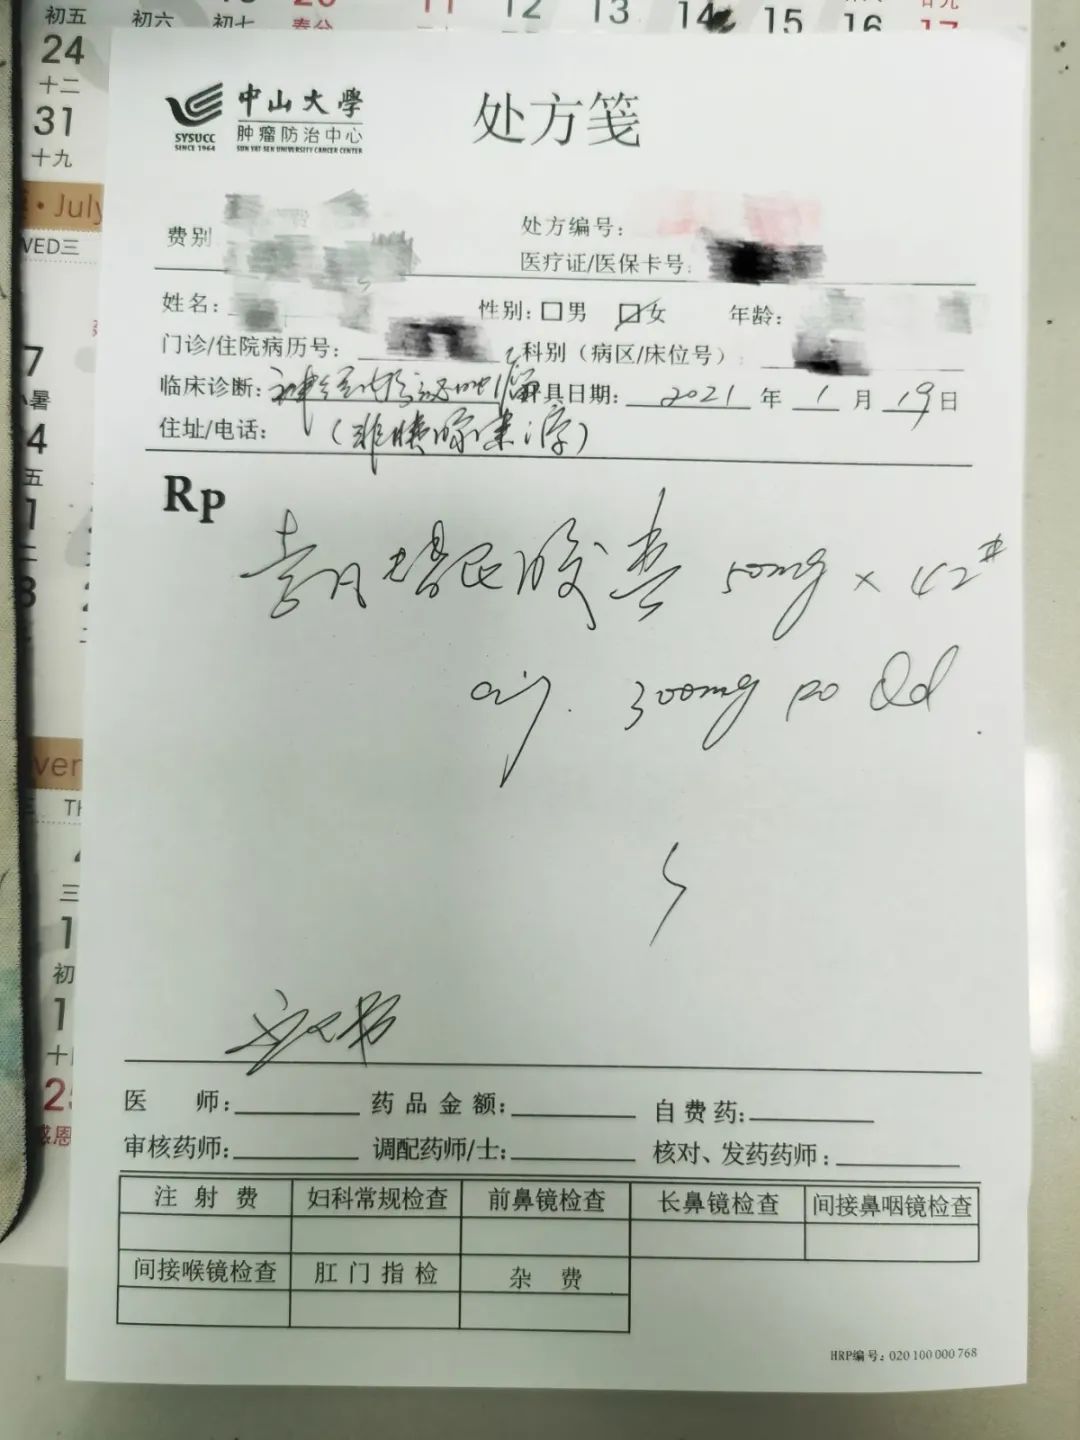 初五 初六 初七 春分 11 12 13 14 15 16 17
24
十二
31
十九
July
WED三
7
暑
4
五
中山大學
肿瘤防治中心
SUN YAT-SEN UNIVERSITY CANCER CENTER
SYSUCC
SINCE 1964
处方笺
费别
处方编号:
医疗证/医保卡号:
姓名: 性别:□男 ☑女 年龄:
门诊/住院病历号: 科别(病区/床位号):
临床诊断:神经内分泌肿瘤 开具日期: 2021 年 1 月 19 日
住址/电话: (非胰腺来源)
Rp
索凡替尼胶囊 50mg × 42#
sig. 300mg po Qd
医 师: 药品金额: 自费药:
审核药师: 调配药师/士: 核对、发药药师:
注射费 妇科常规检查 前鼻镜检查 长鼻镜检查 间接鼻咽镜检查
间接喉镜检查 肛门指检 杂费
HRP编号: 020 100 000 768